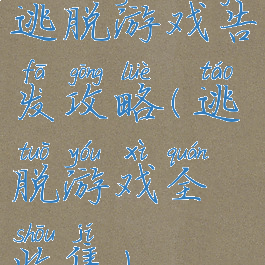 逃脱游戏告
fā gōng lüè táo
发攻略(逃
tuō yóu xì quán
脱游戏全
shōu jí
收集)